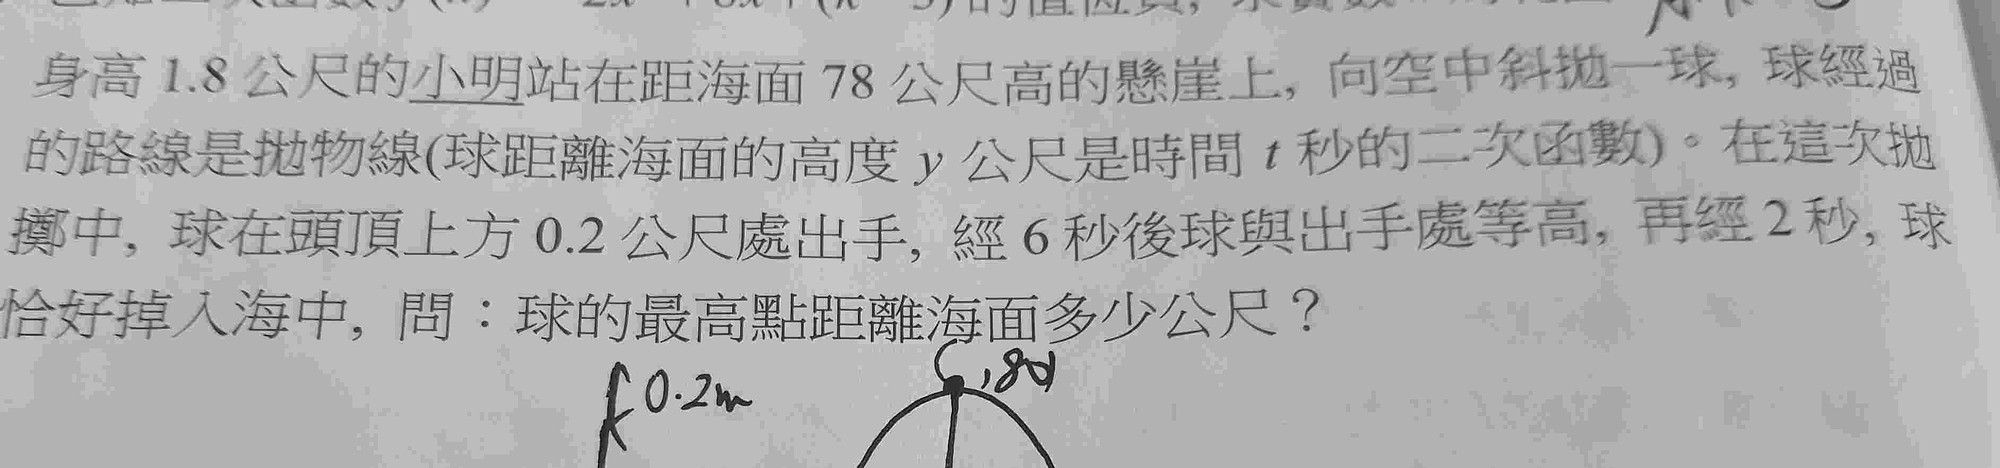 身高 1.8 公尺的小明站在距海面 78 公尺高的懸崖上, 向空中斜拋一球, 球經過
的路線是拋物線(球距離海面的高度 y 公尺是時間 t 秒的二次函數)。在這次拋
擲中, 球在頭頂上方 0.2 公尺處出手, 經 6 秒後球與出手處等高, 再經 2 秒, 球
恰好掉入海中, 問：球的最高點距離海面多少公尺？
0.2m